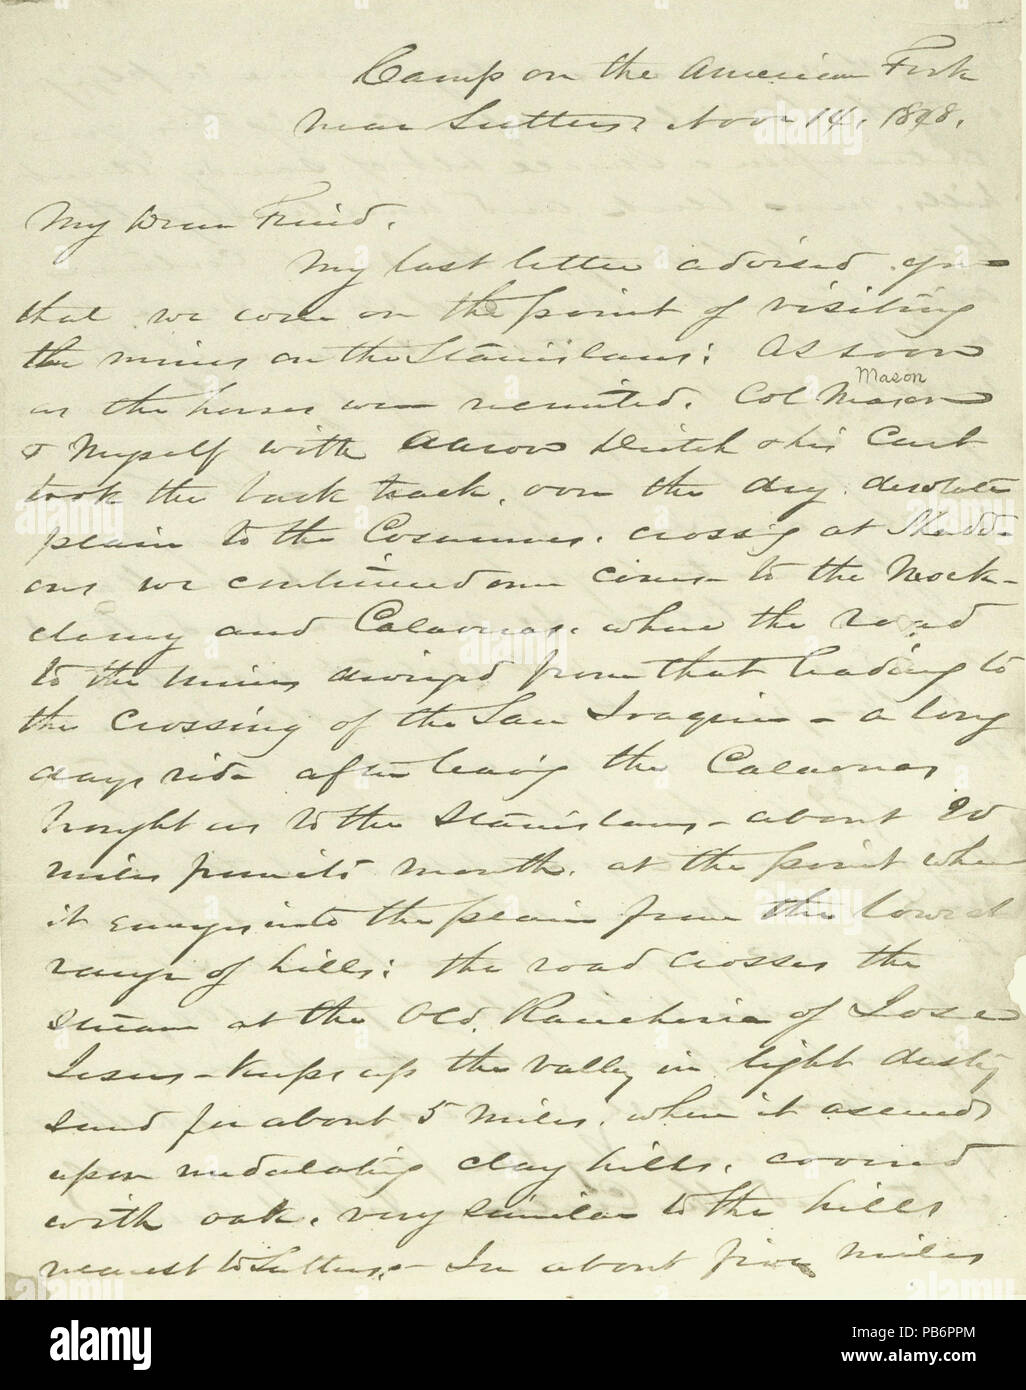 Camp on the American Fork
near Sutters, Nov 14, 1848.
My Dear Friend,
My last letter advised you
that we were on the point of visiting
the mines on the Stanislaus: As soon
Mason
as the horses were recruited, Col Mason
& Myself with Aaron & his Cart
took the back track, over the dry desolate
plain to the Cosumnes, crossing at
we continued our course to the Mock-
elamy and Calaveras, where the road
to the mines diverged from that leading to
the crossing of the San Joaquin - a long
days ride after leaving the Calaveras
brought us to the Stanislaus - about 20
miles from its mouth, at the point where
it emerges into the plain from the lowest
range of hills: the road crosses the
stream at the Old Rancheria of Jose
Jesus - keeps up the valley in light dusty
sand for about 5 miles, when it ascends
upon undulating clay hills, covered
with oak, very similar to the hills
nearest to Sutters, - In about five miles
alamy
alamy
Image ID: PB6PPM
www.alamy.com